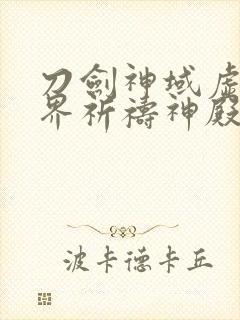 刀劍神域虛
界祈禱神殿
波卡德卡丘